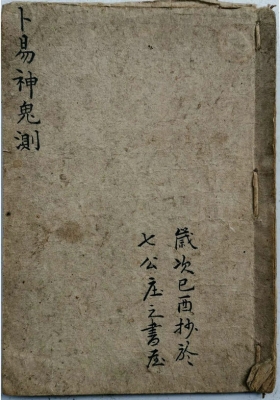 卜易神鬼測
歲次已酉抄於
七公庄之書屋